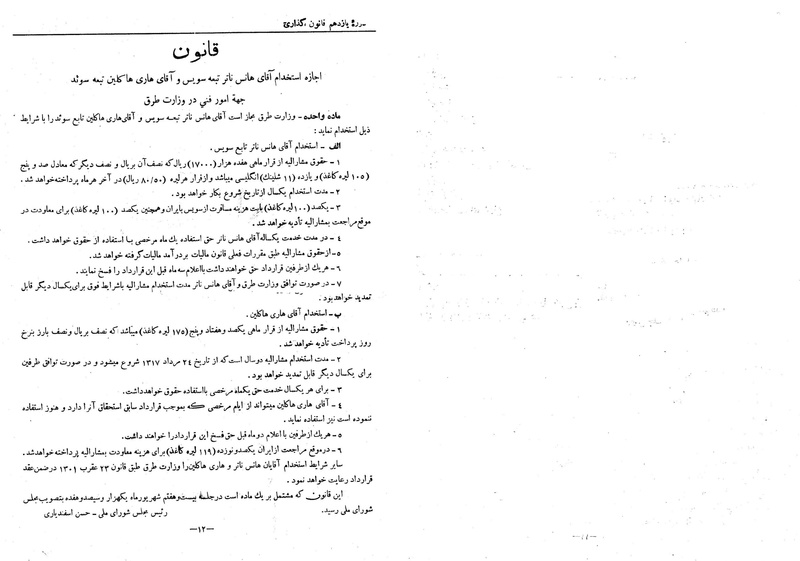 یازدهم قانون گذاری
قانون
اجازه استخدام آقای هانس ناتر تبعه سویس و آقای هاری هاکلین تبعه سوئد
جهة امور فنی در وزارت طرق
ماده واحده - وزارت طرق مجاز است آقای هانس ناتر تبعه سویس و آقای هاری هاکلین تابع سوئد را با شرایط
ذیل استخدام نماید :
الف - استخدام آقای هانس ناتر تابع سویس .
۱ - حقوق مشارالیه از قرار ماهی هفده هزار (۱۷۰۰۰) ریال که نصف آن بریال و نصف دیگر که معادل صد و پنج
(۱۰۵ لیره کاغذ) و یازده (۱۱ شلینك) انگلیسی میباشد و از قرار هر لیره (۸۰/۵۰ ریال) در آخر هر ماه پرداخته خواهد شد .
۲ - مدت استخدام یکسال از تاریخ شروع بکار خواهد بود .
۳ - یکصد (۱۰۰ لیره کاغذ) بابت هزینه مسافرت از سویس بایران و همچنین یکصد (۱۰۰ لیره کاغذ) برای معاودت در
موقع مراجعت بمشارالیه تأدیه خواهد شد .
۴ - در مدت خدمت یکساله آقای هانس ناتر حق استفاده یك ماه مرخصی با استفاده از حقوق خواهد داشت .
۵ - از حقوق مشارالیه طبق مقررات فعلی قانون مالیات بر درآمد مالیات گرفته خواهد شد .
۶ - هریك از طرفین قرارداد حق خواهند داشت با اعلام سه ماه قبل این قرارداد را فسخ نمایند .
۷ - در صورت توافق وزارت طرق و آقای هانس ناتر مدت استخدام مشارالیه باشرایط فوق برای یکسال دیگر قابل
تمدید خواهد بود .
ب - استخدام آقای هاری هاکلین .
۱ - حقوق مشارالیه از قرار ماهی یکصد و هفتاد و پنج (۱۷۵ لیره کاغذ) میباشد که نصف بریال و نصف بارز بنرخ
روز پرداخت تأدیه خواهد شد .
۲ - مدت استخدام مشارالیه دو سال است که از تاریخ ۲۴ مرداد ۱۳۱۷ شروع میشود و در صورت توافق طرفین
برای یکسال دیگر قابل تمدید خواهد بود .
۳ - برای هر یکسال خدمت حق یکماه مرخصی با استفاده حقوق خواهد داشت .
۴ - آقای هاری هاکلین میتواند از ایام مرخصی که بموجب قرارداد سابق استحقاق آنرا دارد و هنوز استفاده
ننموده است نیز استفاده نماید .
۵ - هریك از طرفین با اعلام دو ماه قبل حق فسخ این قرارداد را خواهند داشت .
۶ - در موقع مراجعت از ایران یکصد و نوزده (۱۱۹ لیره کاغذ) برای هزینه معاودت بمشارالیه پرداخته خواهد شد .
سایر شرایط استخدام آقایان هانس ناتر و هاری هاکلین را وزارت طرق طبق قانون ۲۳ عقرب ۱۳۰۱ در ضمن عقد
قرارداد رعایت خواهد نمود .
این قانون که مشتمل بر یك ماده است در جلسه بیست و هفتم شهریور ماه یکهزار و سیصد و هفده بتصویب مجلس
شورای ملی رسید .
رئیس مجلس شورای ملی - حسن اسفندیاری
—۱۲—